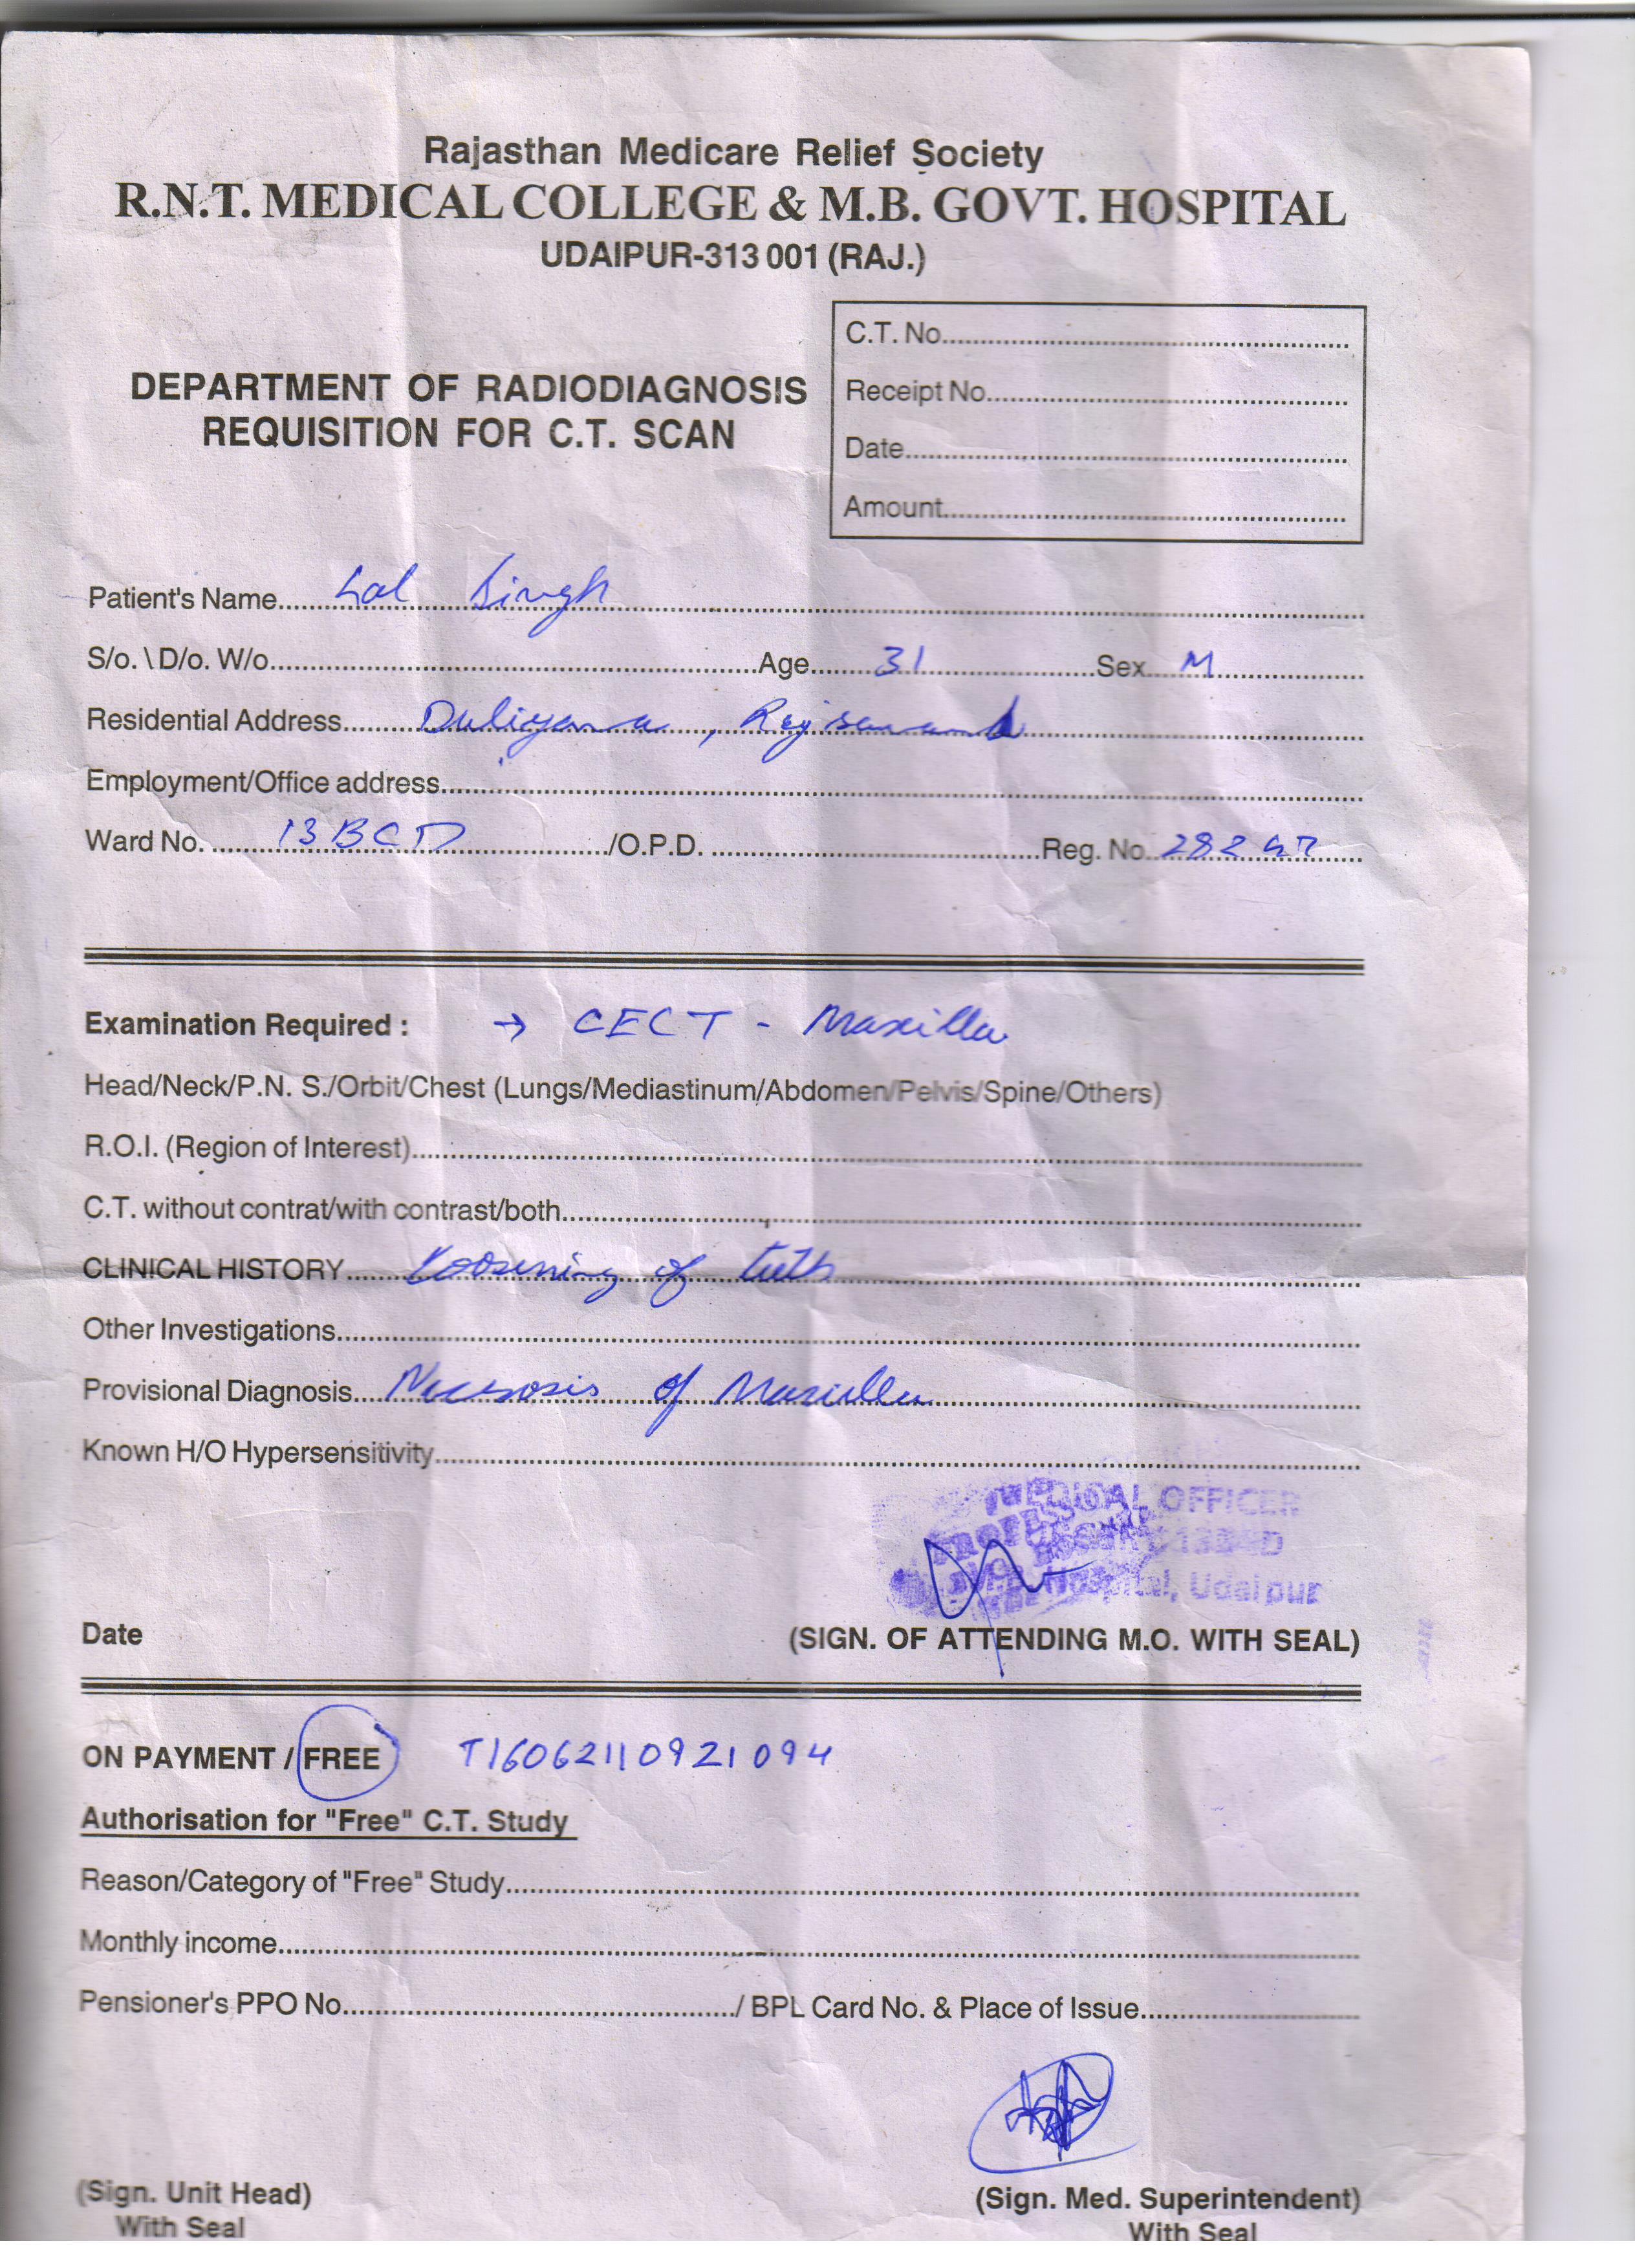 Rajasthan Medicare Relief Society
R.N.T. MEDICAL COLLEGE & M.B. GOVT. HOSPITAL
UDAIPUR-313 001 (RAJ.)
C.T. No.
Receipt No.
Date
Amount
DEPARTMENT OF RADIODIAGNOSIS
REQUISITION FOR C.T. SCAN
Patient's Name Lal Singh
S/o. \ D/o. W/o Age 31 Sex M
Residential Address
Employment/Office address
Ward No. 13 BCD /O.P.D. Reg. No.
Examination Required : → CECT - Maxilla
Head/Neck/P.N. S./Orbit/Chest (Lungs/Mediastinum/Abdomen/Pelvis/Spine/Others)
R.O.I. (Region of Interest)
C.T. without contrat/with contrast/both
CLINICAL HISTORY Loosening of teeth
Other Investigations
Provisional Diagnosis Necrosis of Maxilla
Known H/O Hypersensitivity
MEDICAL OFFICER
Hospital, Udaipur
Date (SIGN. OF ATTENDING M.O. WITH SEAL)
ON PAYMENT / FREE T16062110921094
Authorisation for "Free" C.T. Study
Reason/Category of "Free" Study
Monthly income
Pensioner's PPO No. / BPL Card No. & Place of Issue
(Sign. Unit Head) (Sign. Med. Superintendent)
With Seal With Seal